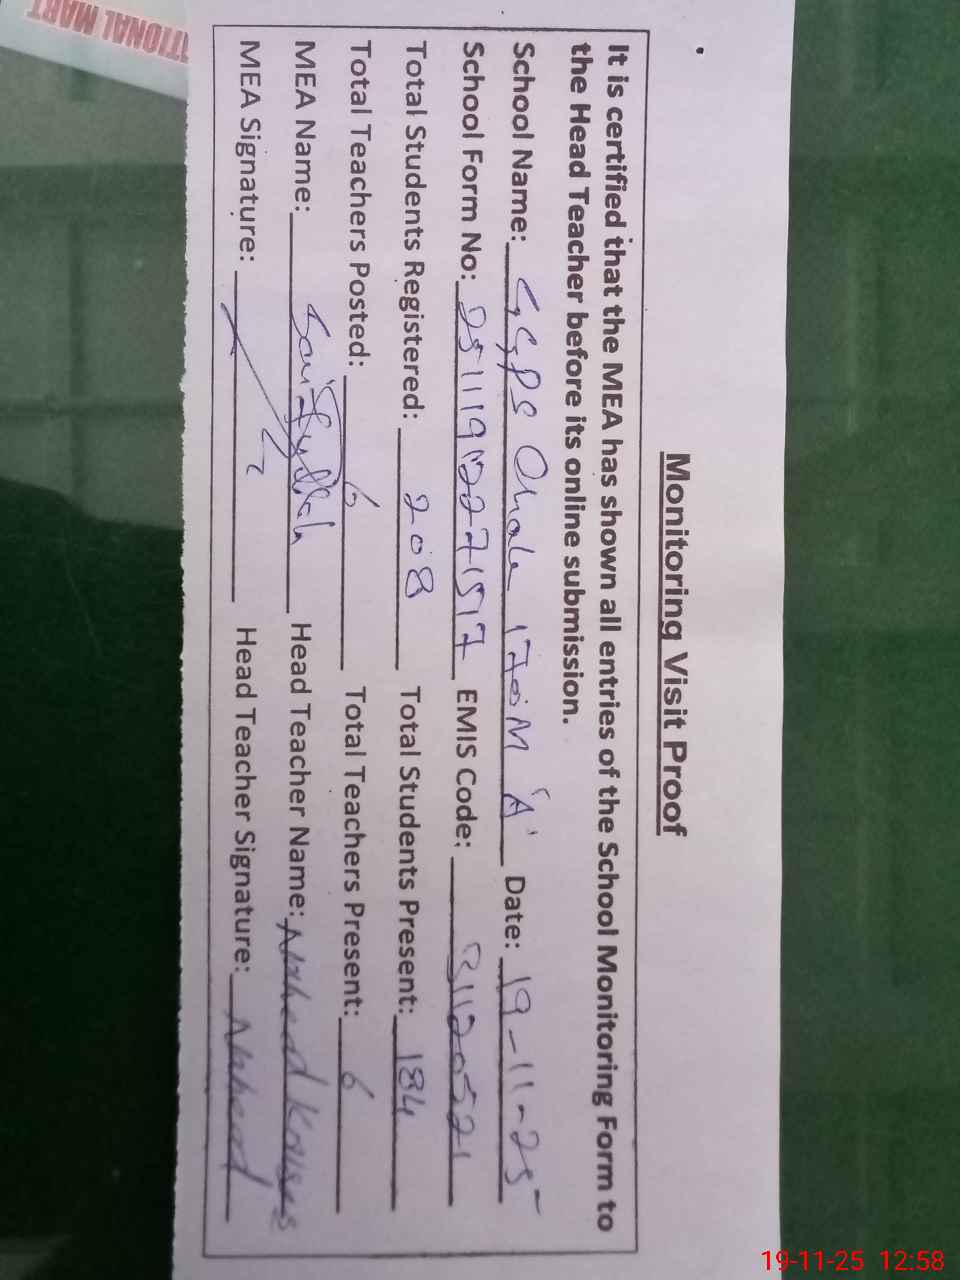 Monitoring Visit Proof
It is certified that the MEA has shown all entries of the School Monitoring Form to
the Head Teacher before its online submission.
School Name: GGPS Chak 170 M 'A' Date: 19-11-25
School Form No: 251119102271517 EMIS Code: 31120521
Total Students Registered: 208 Total Students Present: 184
Total Teachers Posted: 6 Total Teachers Present: 6
MEA Name: Head Teacher Name: Naheed Kausar
MEA Signature: Head Teacher Signature: Naheed
TIONAL MART
19-11-25 12:58